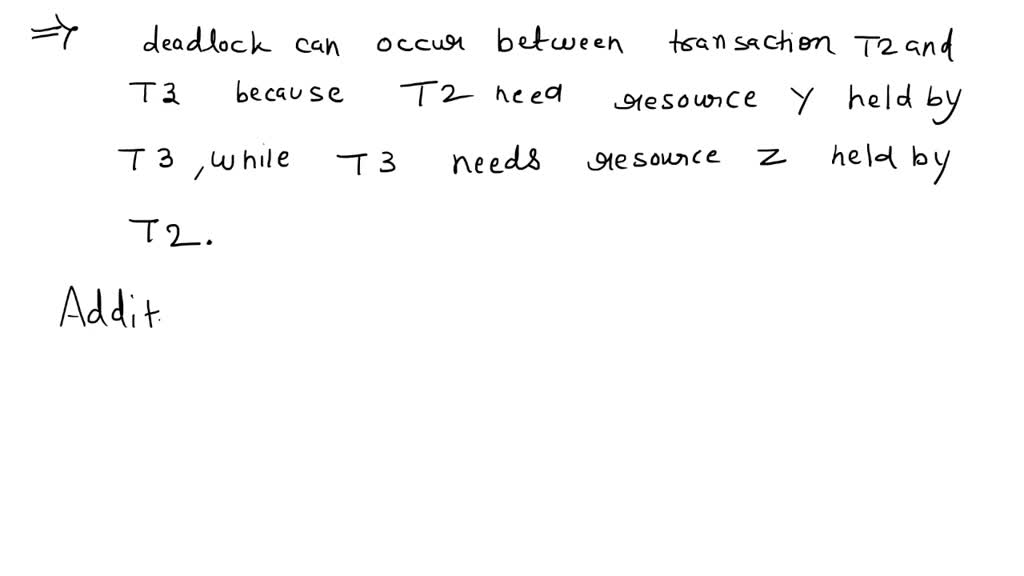 ⇒ deadlock can occur between transaction T2 and
T3 because T2 need resource Y held by
T3, while T3 needs resource Z held by
T2.
Addit